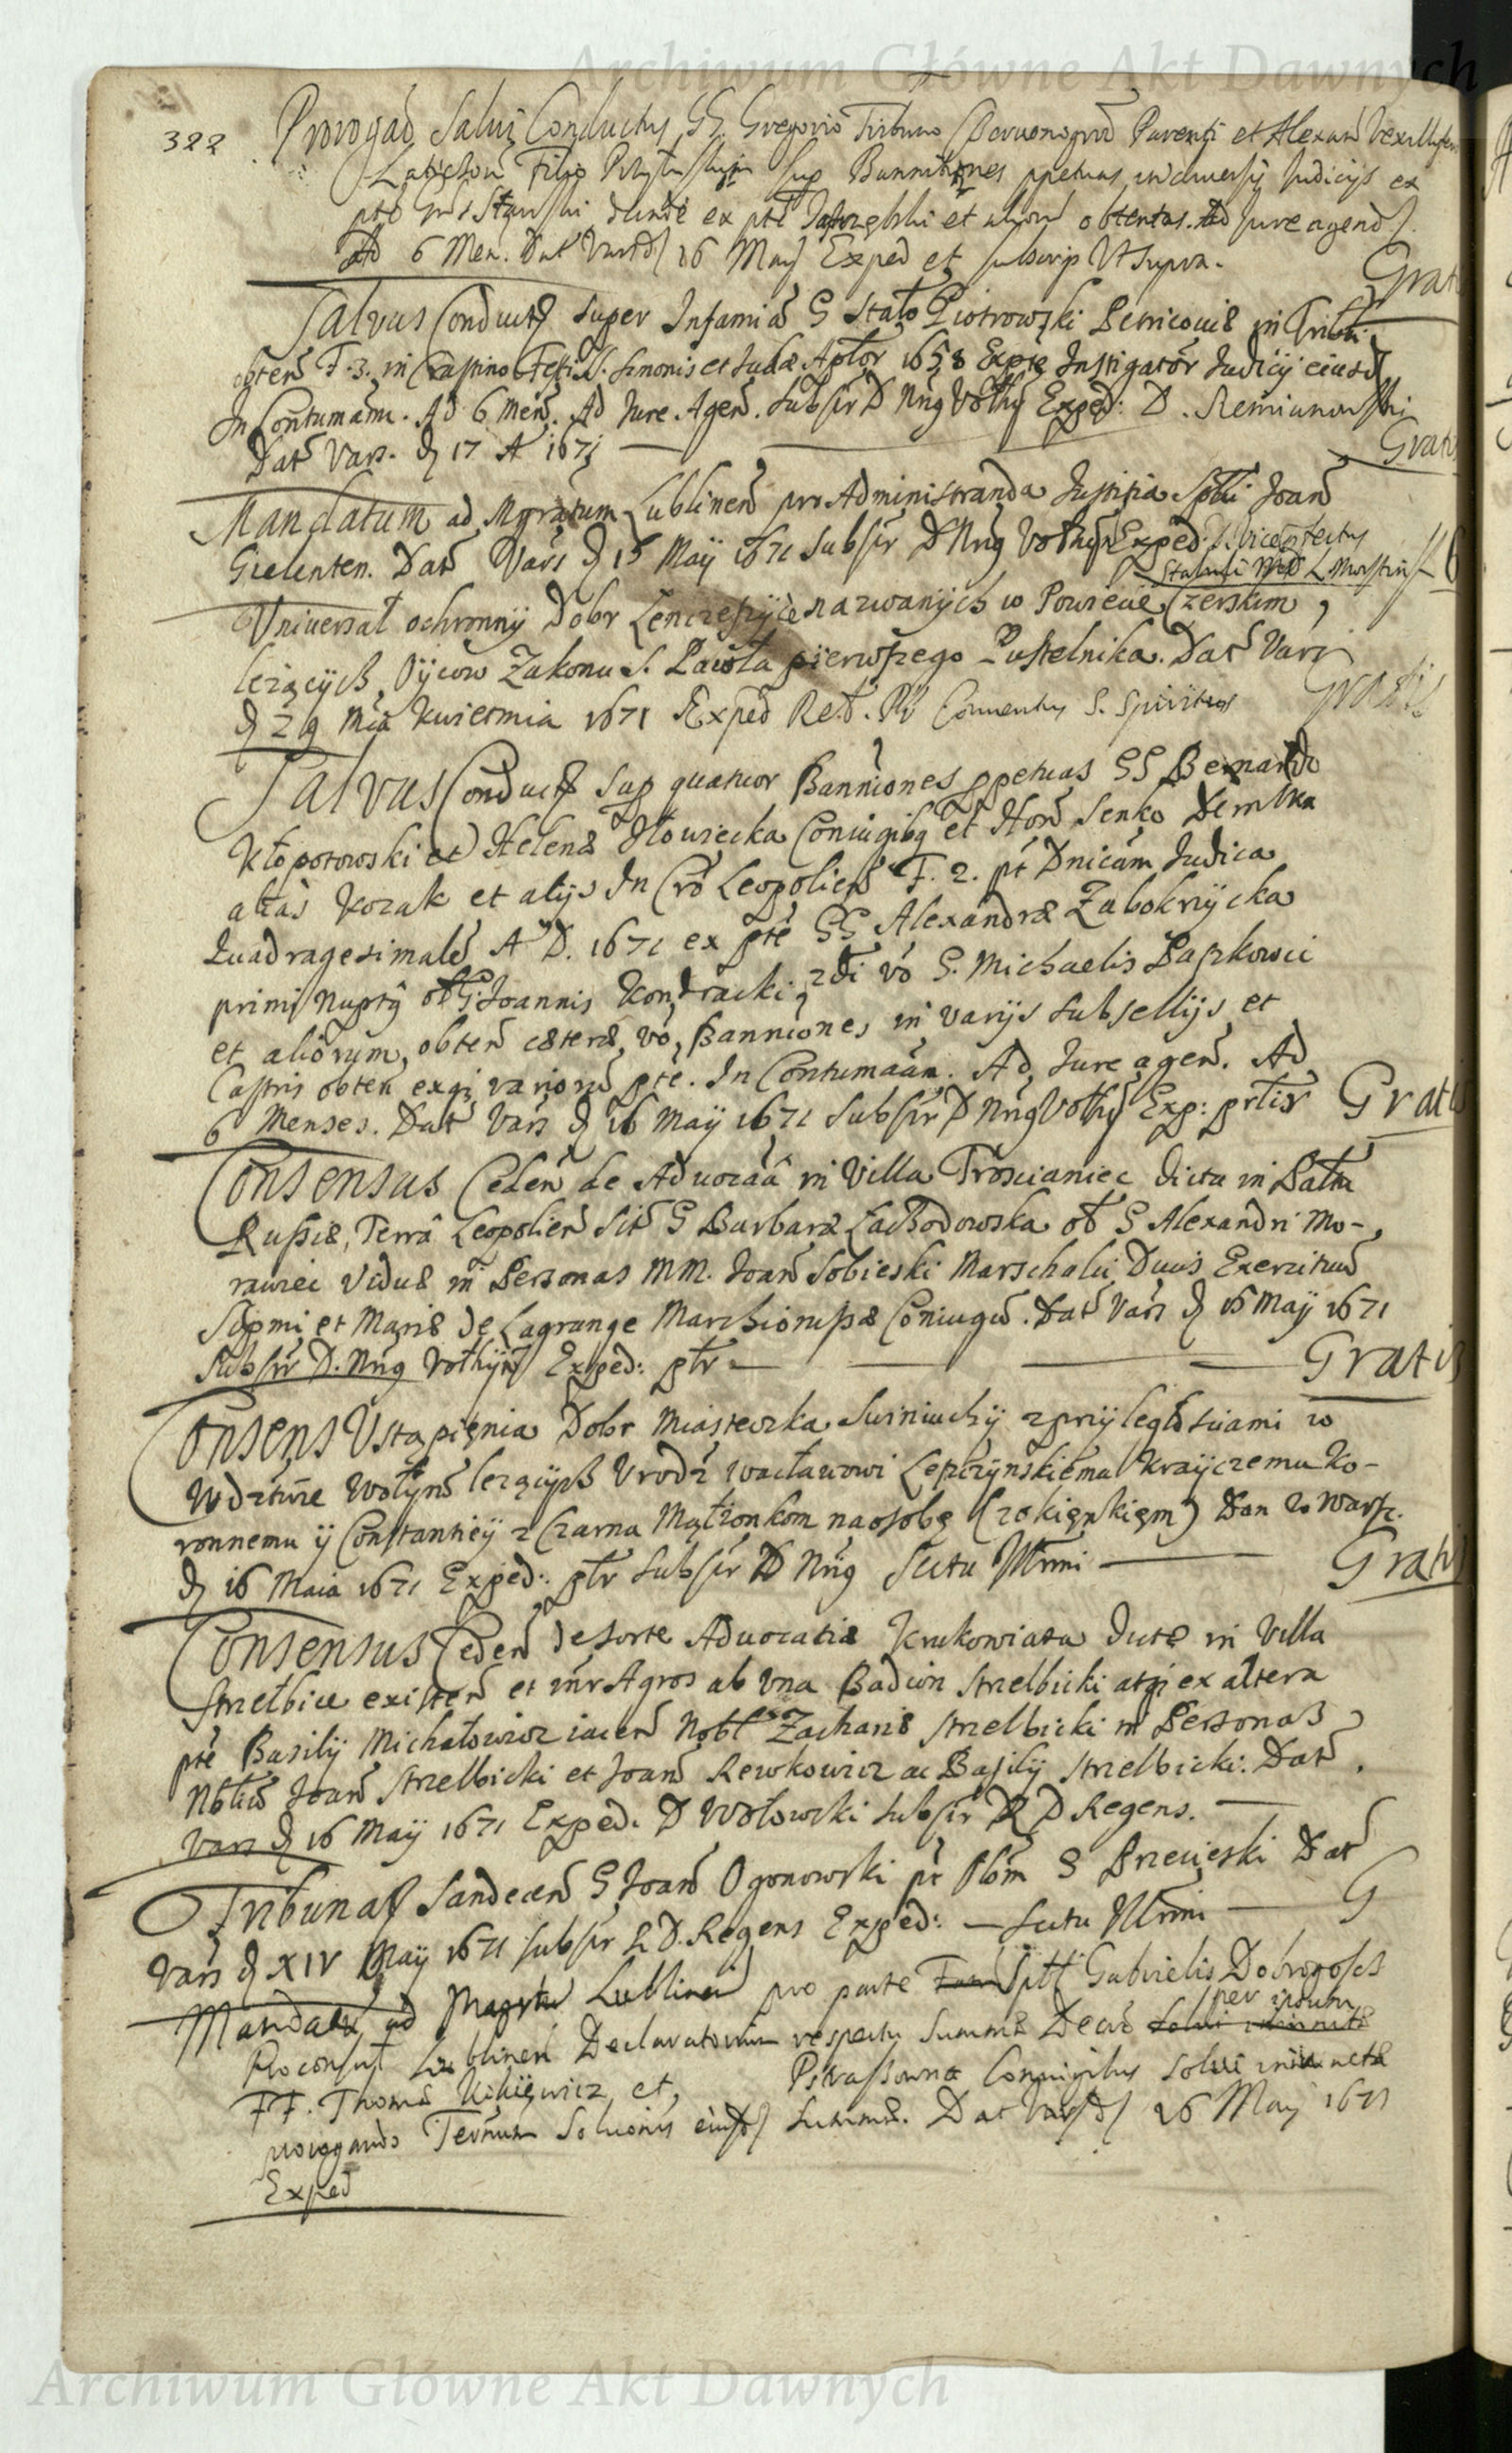 Archiwum Główne Akt Dawnych
322
Prorogaō Salvi Conductus GG. Gregorio Tribuno Parenti et Alexan Vexillifero
Filio sup Bannitiones ppetuas in diversij Judicijs ex
pte ex pte et alior obtentas. Ad Jure agend
Ad 6 Men. Dat Vars d 16 Maij Exped et subscrip Ut supra.
Gratis
Salvus Conduct9 super Infamia G Stalo Piotrowski in Tribli
obten F. 3. in Crastino Festi SS. Simonis et Judæ Aptlor 1658 Expte Instigator Judicij eiusd
In Contumãm. Ad 6 Men. Ad Jure Agen. Subscr D Nrũg Exped: D. Remianowski
Dat Vars. d 17 A 1671
Gratis
Mandatum ad Mgratum Lublinen pro Administranda Justitia Spbli Joan
Gielenten. Dat Vars d 15 Maij 1671 Subscr D Nrũg Exped.
Uniuersał ochronnij Dobr nazwanijch w Powiecie Czerskim,
leżącijch, Oijcow Zakonu S. Pawła pierwszego Pustelnika. Dat Vars
d 29 Mca Kwietnia 1671 Exped Conventus S. Spiritus
Gratis
Salvus Conduct9 Sup quatuor Banniones ppetuas GG Bernardo
Kłopotowski et Helenæ Iłowiecka Coniugibg et Hon Senko Dembka
alias Kozak et alijs In Cro Leopolien F. 2. pt Dnicam Judica
Quadragesimale A D. 1671 ex pte GG Alexandræ Zabokrzijcka
primi nuptij oł G. Joannis Kondracki, 2di vo G. Michaelis Paszkowski
et aliorum, obten cæteræ vo, Banniones in varijs Subsellijs et
Castris obten exqi varior pte. In Contumãam. Ad Jure agen. Ad
6 Menses. Dat Vars d 16 Maij 1671 Subscr D Nrũg Exp:
Gratis
Consensus Ceden de Aduocãa in Villa Troscianiec dicta in Pałtu
Russiæ, Terra Leopolien Sit G Barbaræ Łachodowska oł G Alexandri Mo-
rawiec Viduæ in Personas MM. Joan Sobieski Marschalci Ducis Exercituũ
Supmi et Mariæ de Lagrange Marchionissæ Coniugũ. Dat Vars d 16 Maij 1671
Subscr D. Nrũg Exped: ptr
Gratis
Consens Ustąpienia Dobr Miasteczka Swiniuchij zprzijległosciami w
Wdztwie Wołijns leżącijch Urodz Wacławowi Lesczijnskiemu Kraijczemu Ko-
ronnemu ij Constantieij z Czarna Małżonkom na osobę Czokieyskiem) Dan w Warsz.
d 16 Maia 1671 Exped: ptr Subscr D Nrũg
Gratis
Consensus Ceden de sorte Aduocatiæ Krukowiata dictæ in Villa
Strzelbice existen et intr Agros ab una Badwin Strzelbicki atqi ex altera
pte Basilij Michałowicz iacen Nobl Zachariæ Strzelbicki in Personas
Nbliũ Joan Strzelbicki et Joan Rewkowicz ac Basilij Strzelbicki. Dat
Vars d 16 Maij 1671 Exped. D Wołowski Subscr R D Regens.
Tribunat Sandecen G Joan Ogonowski pt Obm G Brzecieski Dat
Vars d XIV Maij 1671 Subscr R D. Regens Exped:
G
Mandatũ ad Magratũ Lublinen pro parte Spbl Gabrielis Dobrogosts
Proconsul Lublinen Declaratorium respectu Summæ Decre per ipsum
FF. Thomæ et, Coniugibus solvi iniunctæ
prorogando Terminum Solucionis eiusd Summæ. Dat Vars d 26 Maij 1671
Exped
Archiwum Główne Akt Dawnych